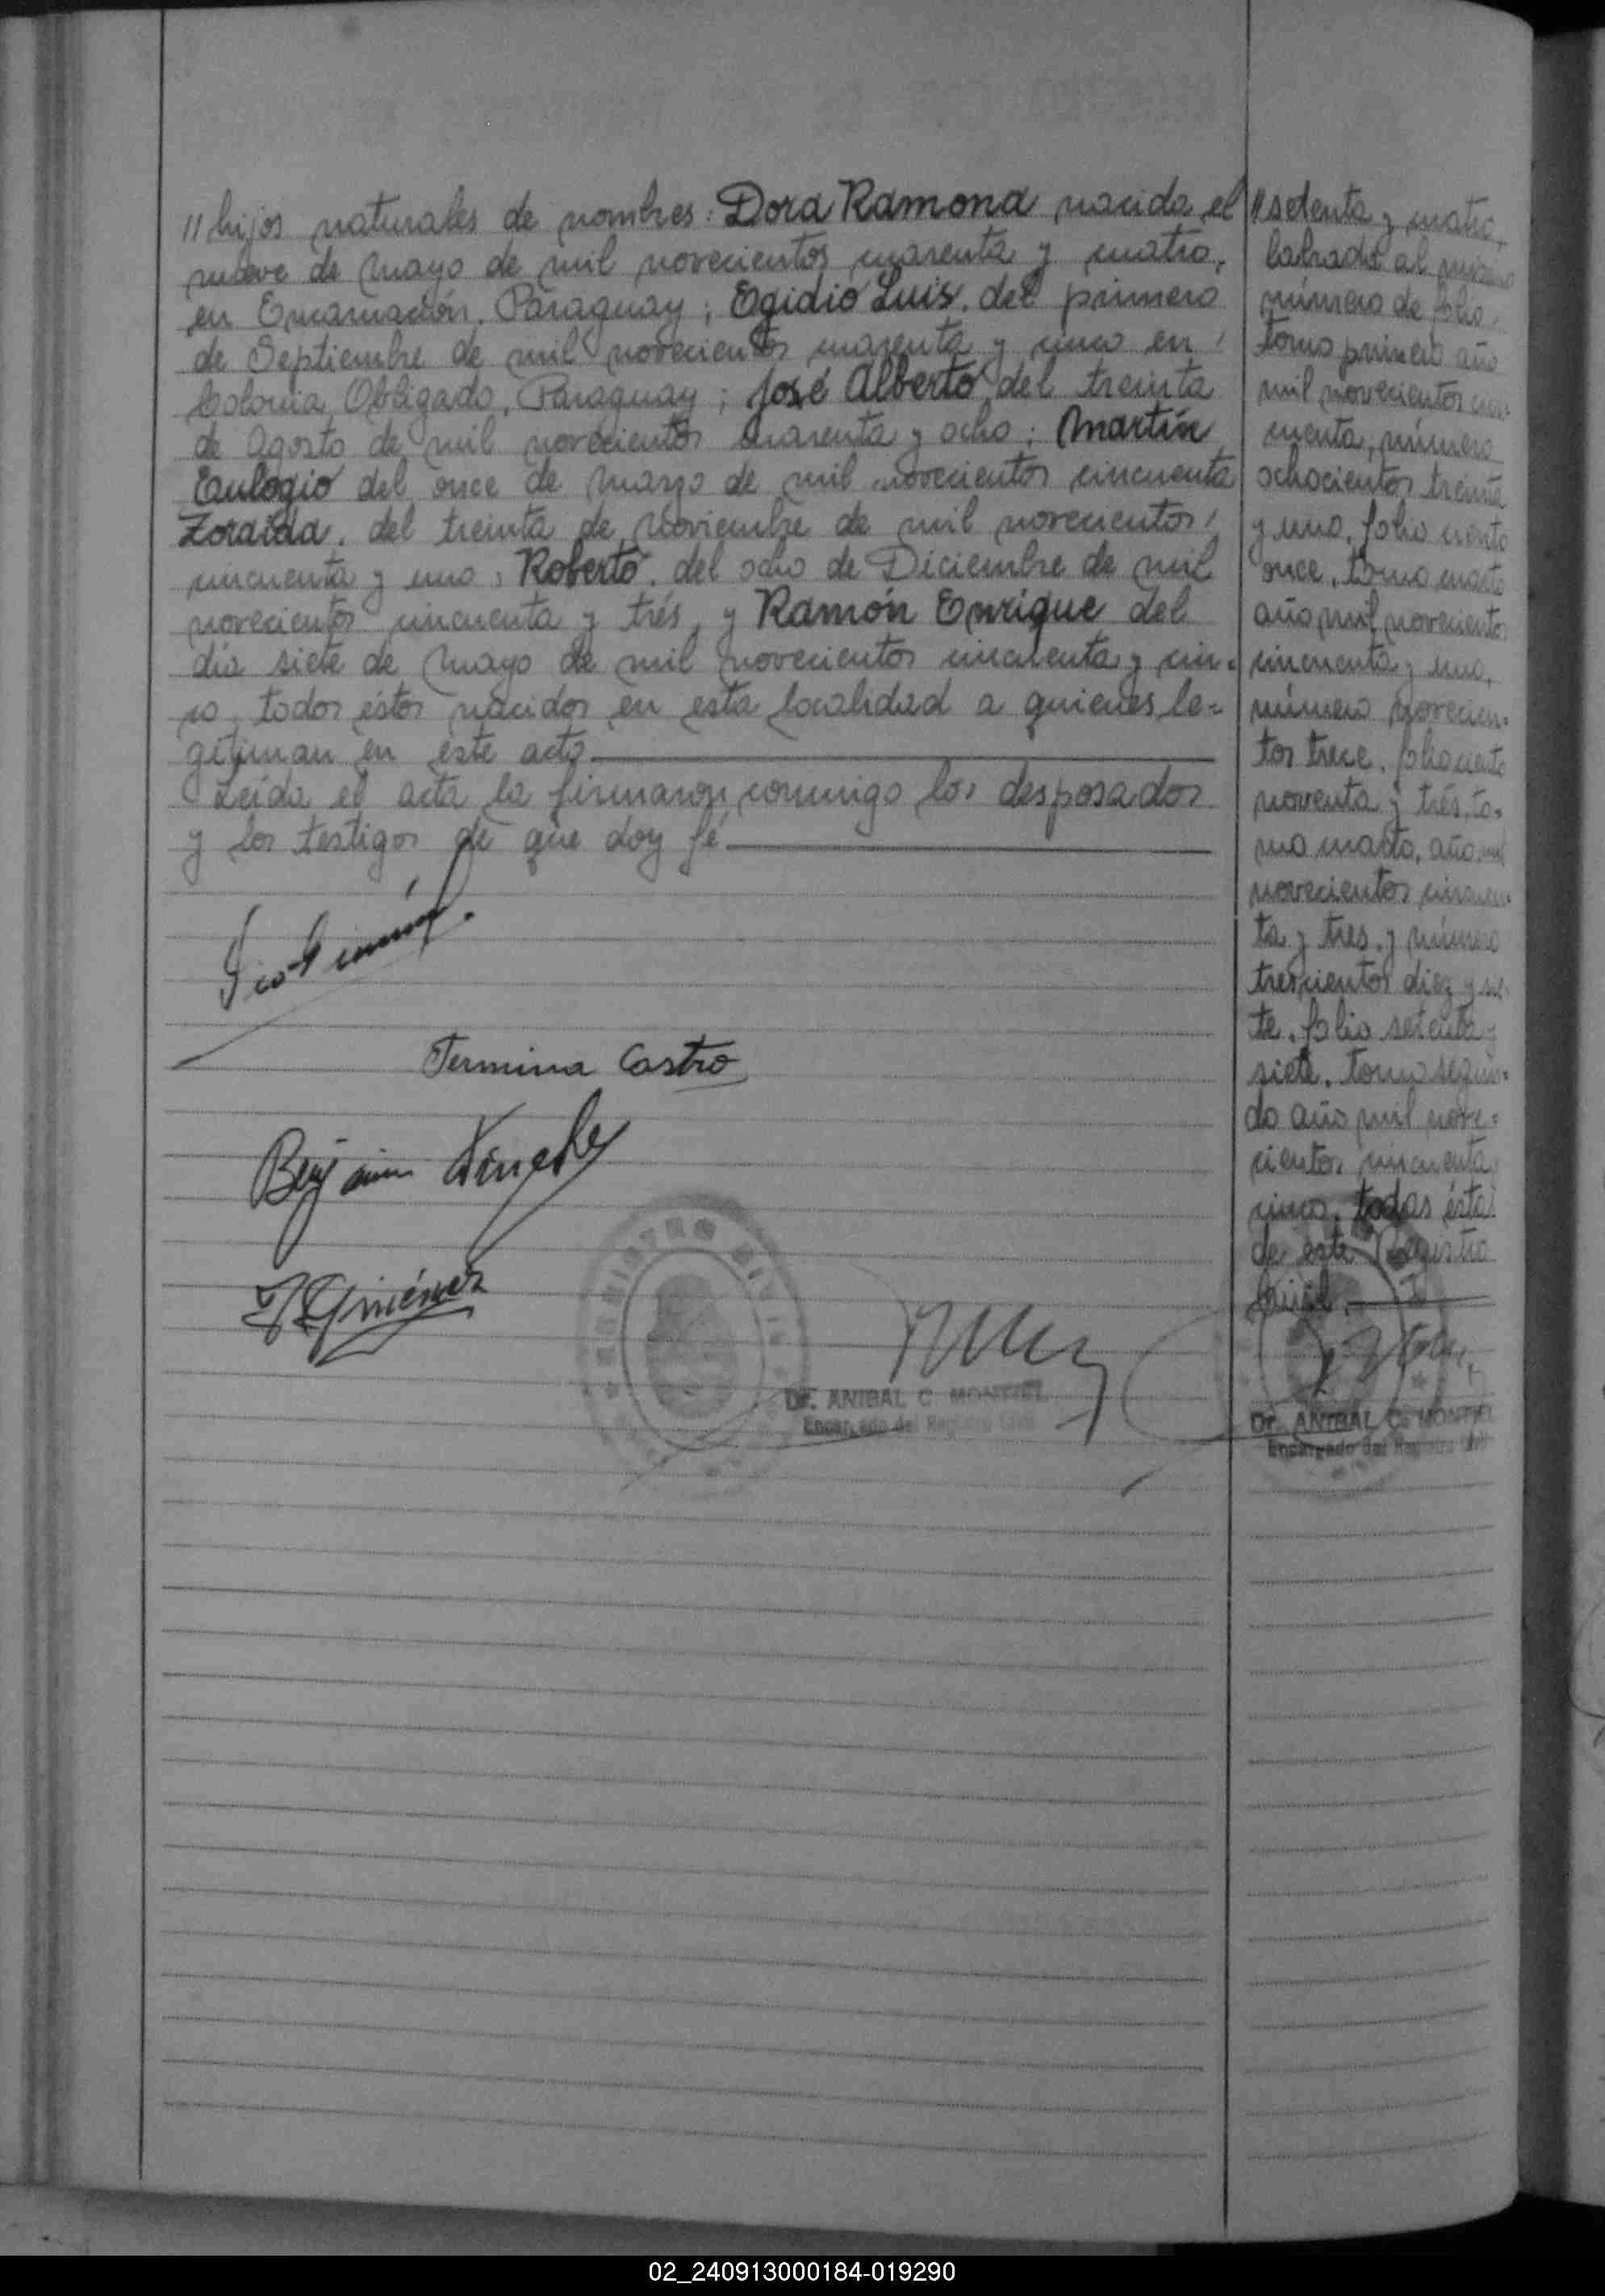 // hijos naturales de nombres: Dora Ramona nacida el
nueve de Mayo de mil novecientos cuarenta y cuatro,
en Encarnación, Paraguay; Egidio Luis, del primero
de Septiembre de mil novecientos cuarenta y cinco en
Colonia Obligado, Paraguay; José Alberto, del treinta
de Agosto de mil novecientos cuarenta y ocho; Martín
Eulogio del once de Marzo de mil novecientos cincuenta
Zoraida, del treinta de Noviembre de mil novecientos
cincuenta y uno, Roberto, del ocho de Diciembre de mil
novecientos cincuenta y trés, y Ramón Enrique del
día siete de Mayo de mil novecientos cincuenta y cin=
co, todos éstos nacidos en esta localidad a quienes le=
gitiman en este acto
Leída el acta la firmaron conmigo los desposados
y los testigos de que doy fé
Termina Castro
Benjamin
Giménez
REGISTRO CIVIL
Dr. ANIBAL C. MONTIEL
Encargado del Registro Civil
// setenta y cuatro,
labrada al mismo
número de folio,
tomo primero año
mil novecientos cin=
cuenta; número
ochocientos treinta
y uno, folio ciento
once, tomo cuarto
año mil novecientos
cincuenta y uno,
número novecien=
tos trece, folio ciento
noventa y trés, to=
mo cuarto, año mil
novecientos cincuen=
ta y tres, y número
trescientos diez y sie=
te, folio setenta y
siete, tomo segun=
do año mil nove=
cientos cincuenta y
cinco, todas éstas
de este Registro
Civil.
Dr. ANIBAL C. MONTIEL
Encargado del Registro Civil
02_240913000184-019290